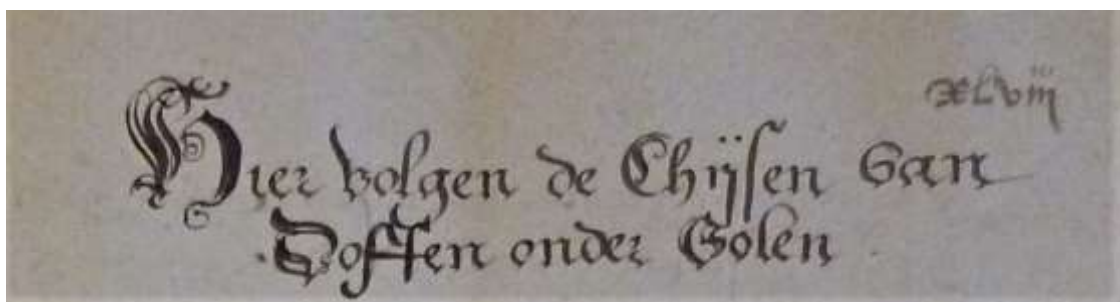 xlviij
Hier volgen de Chijsen van
Doffen onder Oolen